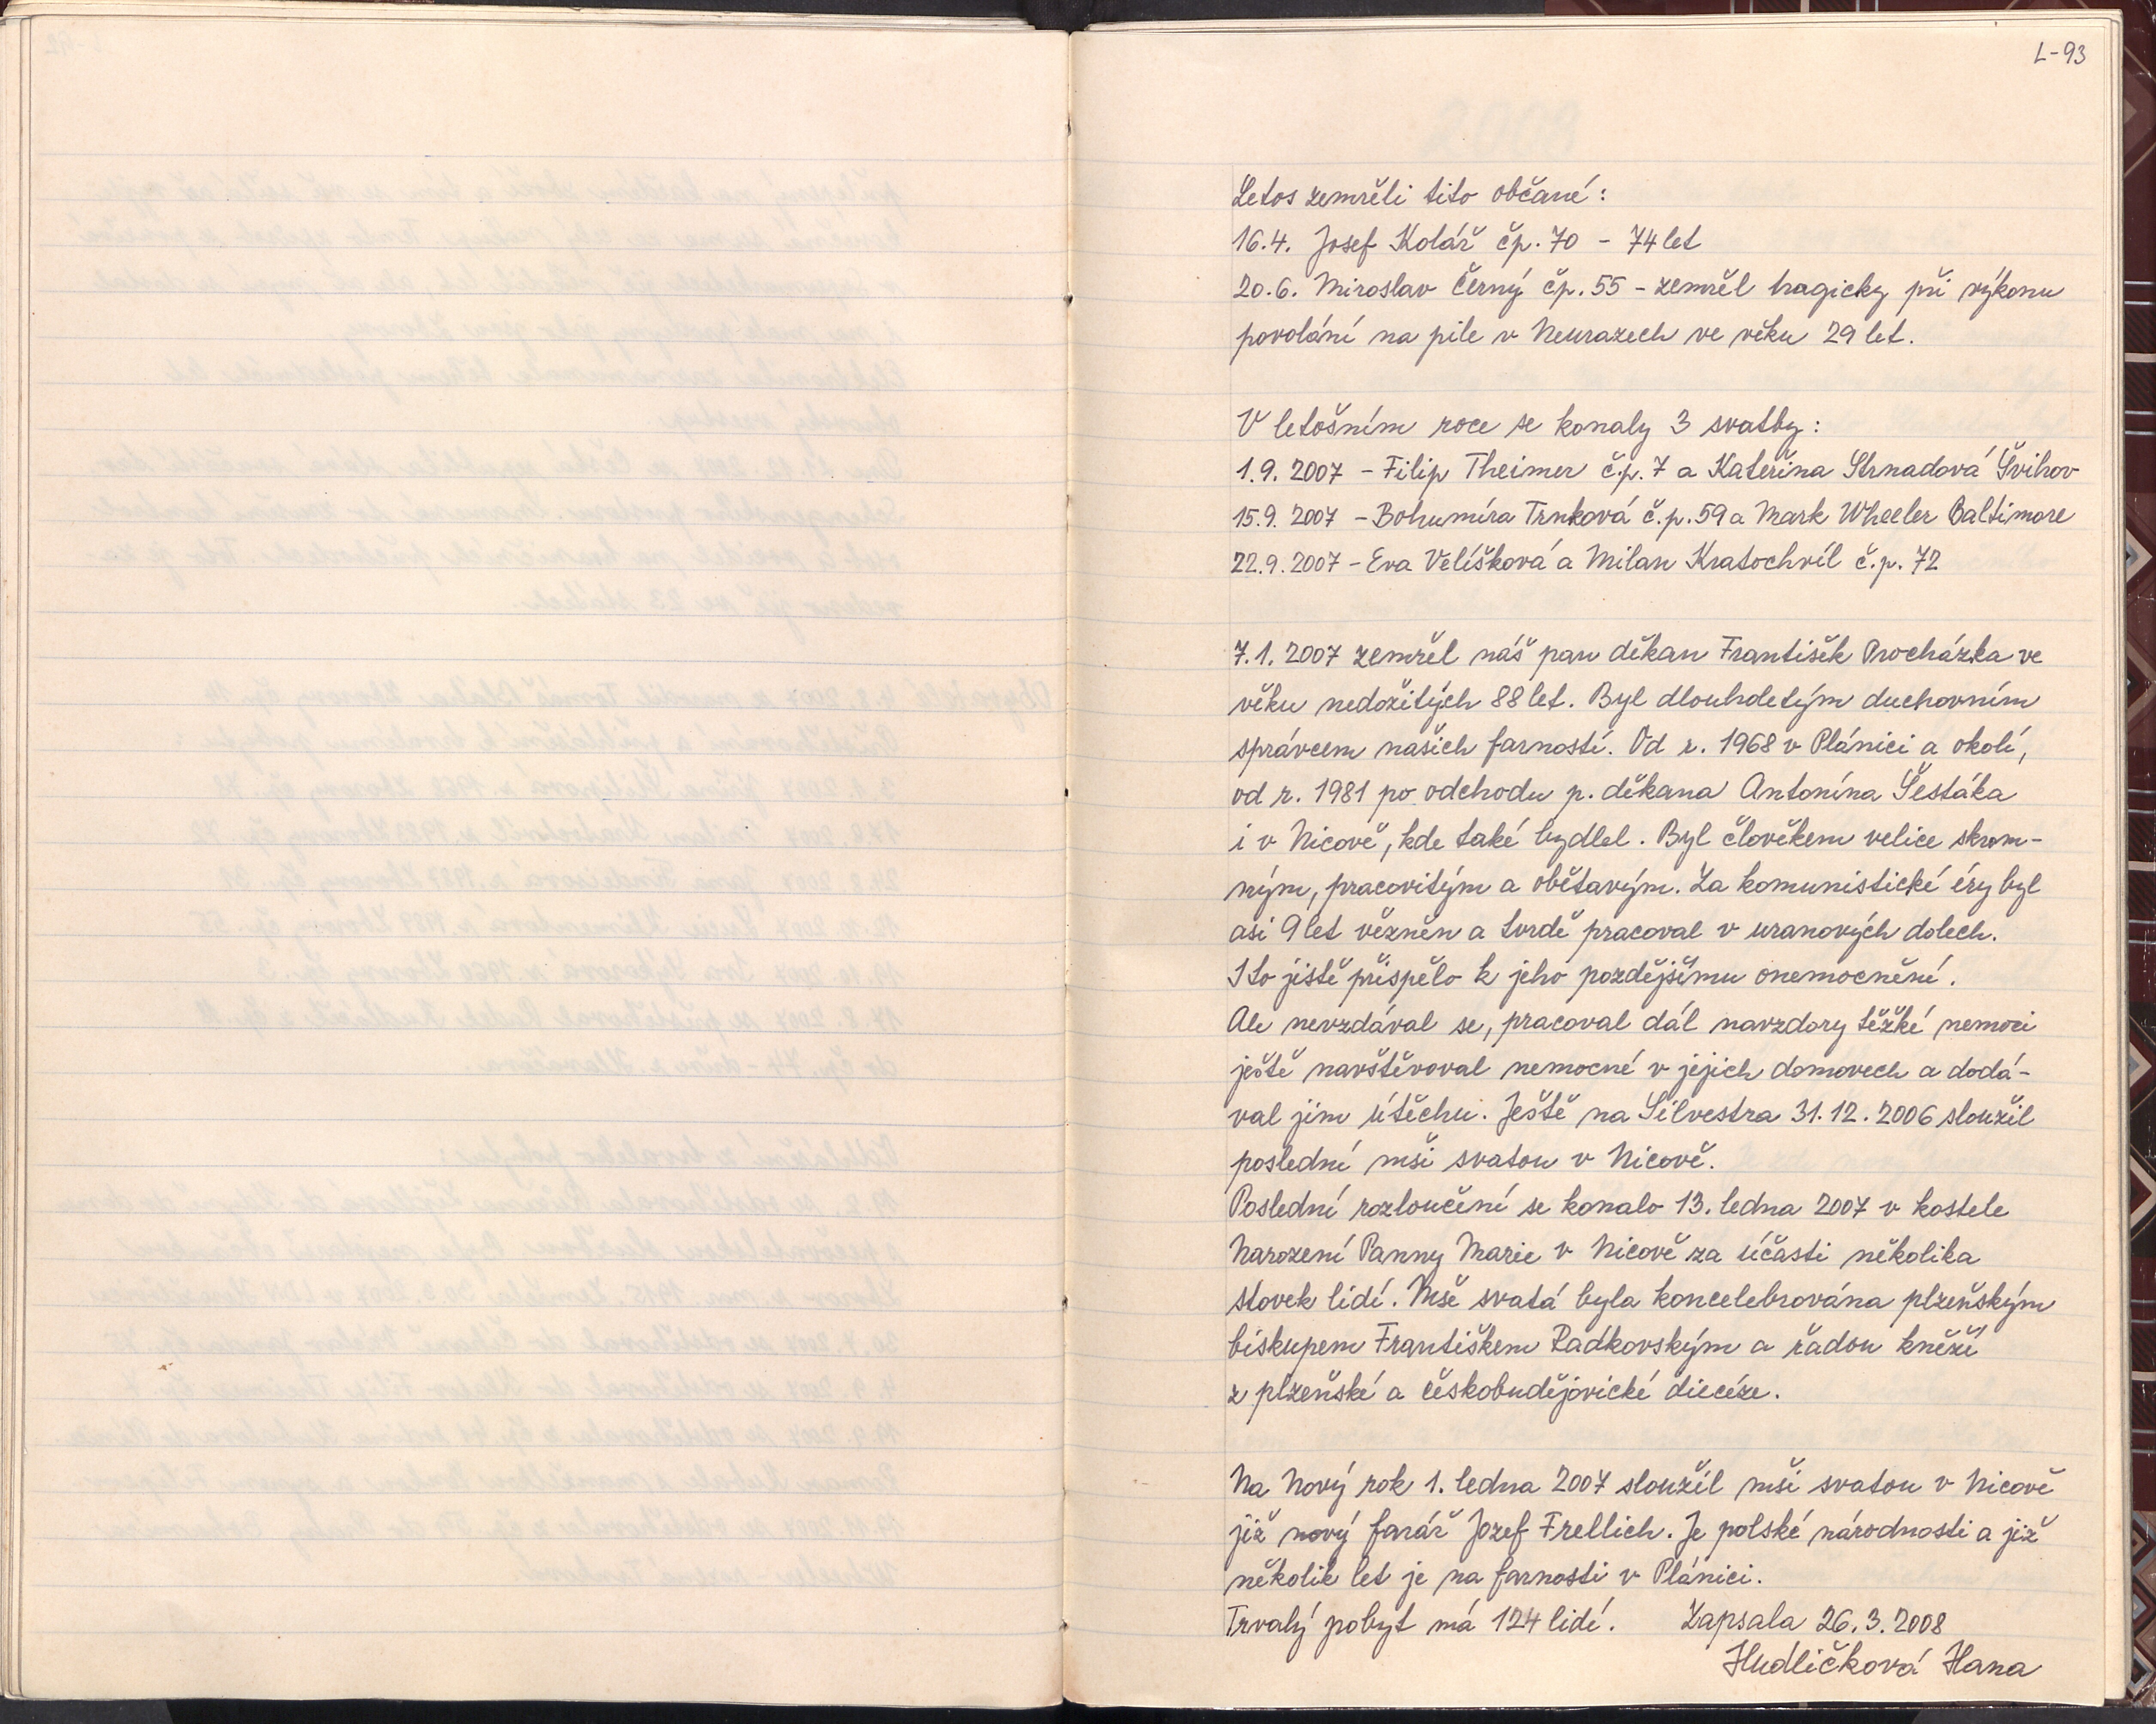 L-93
Letos zemřeli tito občané:
16.4. Josef Kolář čp. 70 - 74 let
20.6. Miroslav Černý čp. 55 - zemřel tragicky při výkonu
povolání na pile v Neurazech ve věku 29 let.
V letošním roce se konaly 3 svatby:
1.9. 2007 - Filip Theimer č.p. 7 a Kateřina Strnadová Švihov
15.9. 2007 - Bohumíra Trnková č.p. 59 a Mark Wheeler Baltimore
22.9. 2007 - Eva Velíšková a Milan Kratochvíl č.p. 72
7.1. 2007 zemřel náš pan děkan František Procházka ve
věku nedožitých 88 let. Byl dlouholetým duchovním
správcem našich farností. Od r. 1968 v Plánici a okolí,
od r. 1981 po odchodu p. děkana Antonína Šestáka
i v Nicově, kde také bydlel. Byl člověkem velice skrom-
ným, pracovitým a obětavým. Za komunistické éry byl
asi 9 let vězněn a tvrdě pracoval v uranových dolech.
I to jistě přispělo k jeho pozdějšímu onemocnění.
Ale nevzdával se, pracoval dál navzdory těžké nemoci
ještě navštěvoval nemocné v jejich domovech a dodá-
val jim útěchu. Ještě na Silvestra 31.12. 2006 sloužil
poslední mši svatou v Nicově.
Poslední rozloučení se konalo 13. ledna 2007 v kostele
Narození Panny Marie v Nicově za účasti několika
stovek lidí. Mše svatá byla koncelebrována plzeňským
biskupem Františkem Radkovským a řadou kněží
z plzeňské a českobudějovické diecéze.
Na Nový rok 1. ledna 2007 sloužil mši svatou v Nicově
již nový farář Jozef Frellich. Je polské národnosti a již
několik let je na farnosti v Plánici.
Trvalý pobyt má 124 lidí. Zapsala 26.3. 2008
Hudličková Hana